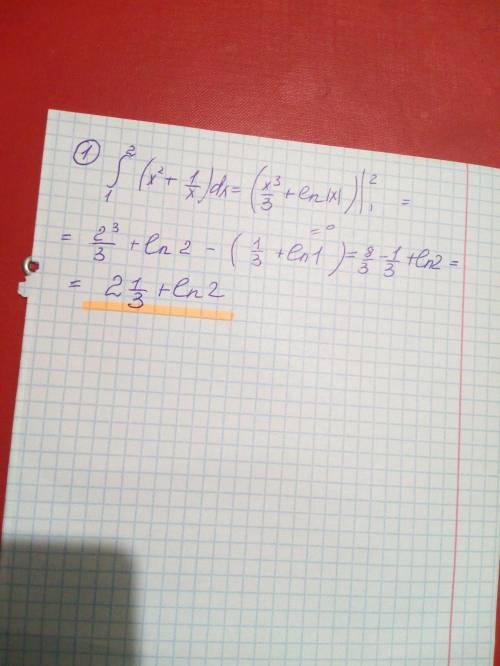 ① ∫₁² (x² + 1/x) dx = (x³/3 + ln|x|) |₁² =
= 2³/3 + ln 2 - (1/3 + ln 1) = 8/3 - 1/3 + ln 2 =
= 0
= 2 1/3 + ln 2